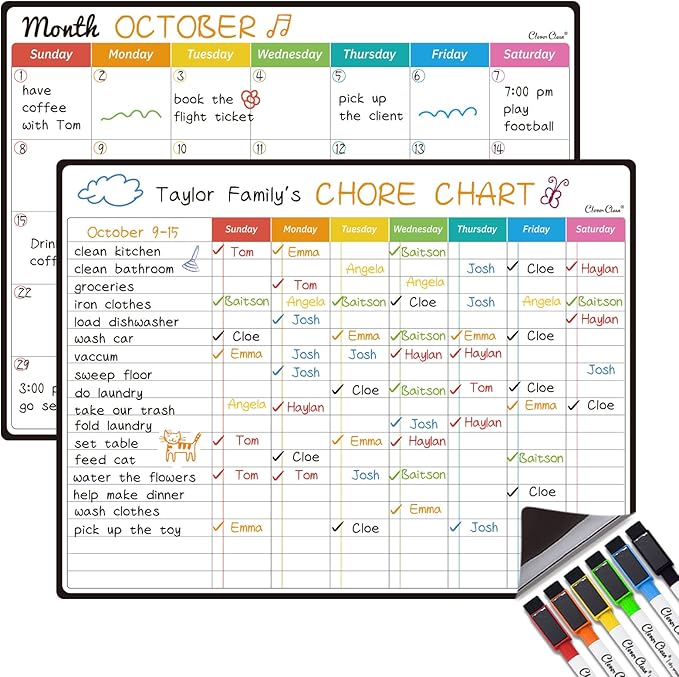 Month OCTOBER Clever Clean®
Sunday Monday Tuesday Wednesday Thursday Friday Saturday
1 2 3 4 5 6 7
have coffee with Tom
book the flight ticket
pick up the client
7:00 pm play football
8 9 10 11 12 13 14
15
22
29
3:00 p
go se
Taylor Family's CHORE CHART Clever Clean®
October 9-15 Sunday Monday Tuesday Wednesday Thursday Friday Saturday
clean kitchen ✓ Tom ✓ Emma ✓Baitson
clean bathroom Angela Josh ✓ Cloe ✓ Haylan
groceries ✓ Tom Angela
iron clothes ✓Baitson Angela ✓Baitson ✓ Cloe Josh Angela ✓Baitson
load dishwasher ✓ Josh ✓ Haylan
wash car ✓ Cloe ✓ Emma ✓Baitson ✓ Emma ✓ Cloe
vaccum ✓ Emma Josh Josh ✓ Haylan ✓ Haylan
sweep floor ✓ Josh Josh
do laundry ✓ Cloe ✓Baitson ✓ Tom ✓ Cloe
take our trash Angela ✓ Haylan ✓ Emma ✓ Cloe
fold laundry ✓ Josh ✓ Haylan
set table ✓ Tom ✓ Emma ✓ Haylan
feed cat ✓ Cloe ✓Baitson
water the flowers ✓ Tom ✓ Tom Josh ✓Baitson
help make dinner ✓ Cloe
wash clothes ✓ Emma
pick up the toy ✓ Emma ✓ Cloe ✓ Josh
Clever Clean
Clever Clean
Clever Clean
Clever Clean